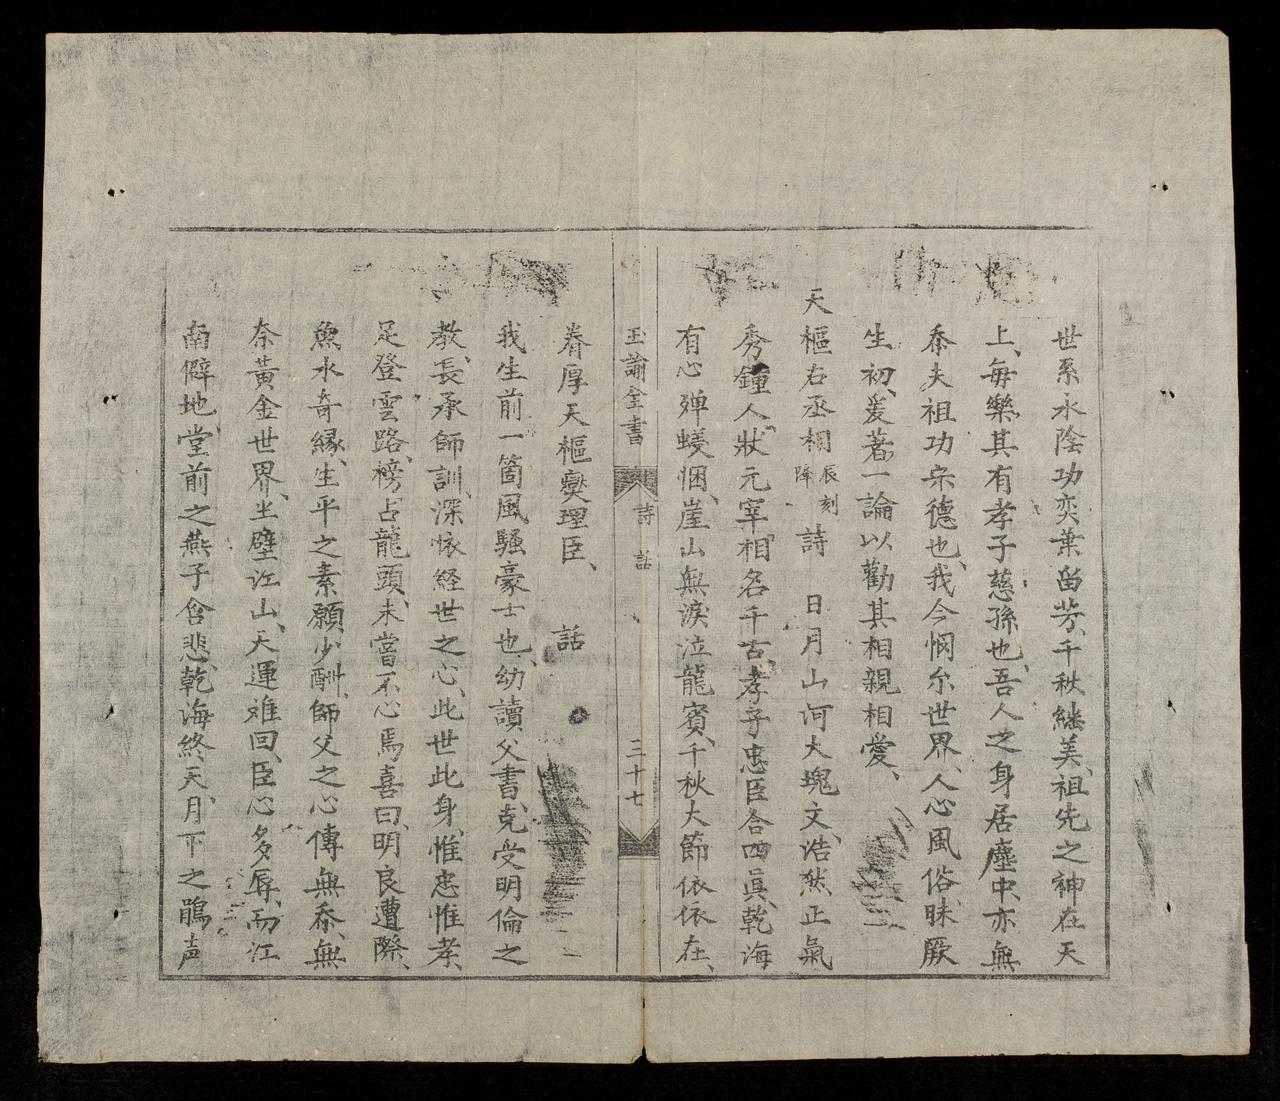 世系永陰功奕葉留芳、千秋継美、祖先之神在天
上、每樂其有孝子慈孫也、吾人之身居塵中、亦無
忝夫祖功宗德也、我今憫尔世界、人心風俗、昧厥
生初、爰著一論以勸其相親相愛、
天樞右丞相辰刻降詩　日月山河大塊文、浩然正氣
秀鍾人、狀元宰相名千古、孝子忠臣合四眞、乾海
有心殫蟻悃、崖山無淚泣龍賓、千秋大節依依在、
玉諭金書　詩　話　三十七
眷厚天樞燮理臣、　話
我生前一箇風騷豪士也、幼讀父書、克受明倫之
教、長承師訓、深懷経世之心、此世此身、惟忠惟孝、
足登雲路、榜占龍頭、未嘗不心焉喜曰、明良遭際、
魚水奇縁、生平之素願少酬、師父之心傳無忝、無
奈黄金世界、半壁江山、天運难回、臣心多辱、而江
南僻地、堂前之燕子含悲、乾海終天、月下之鵑声